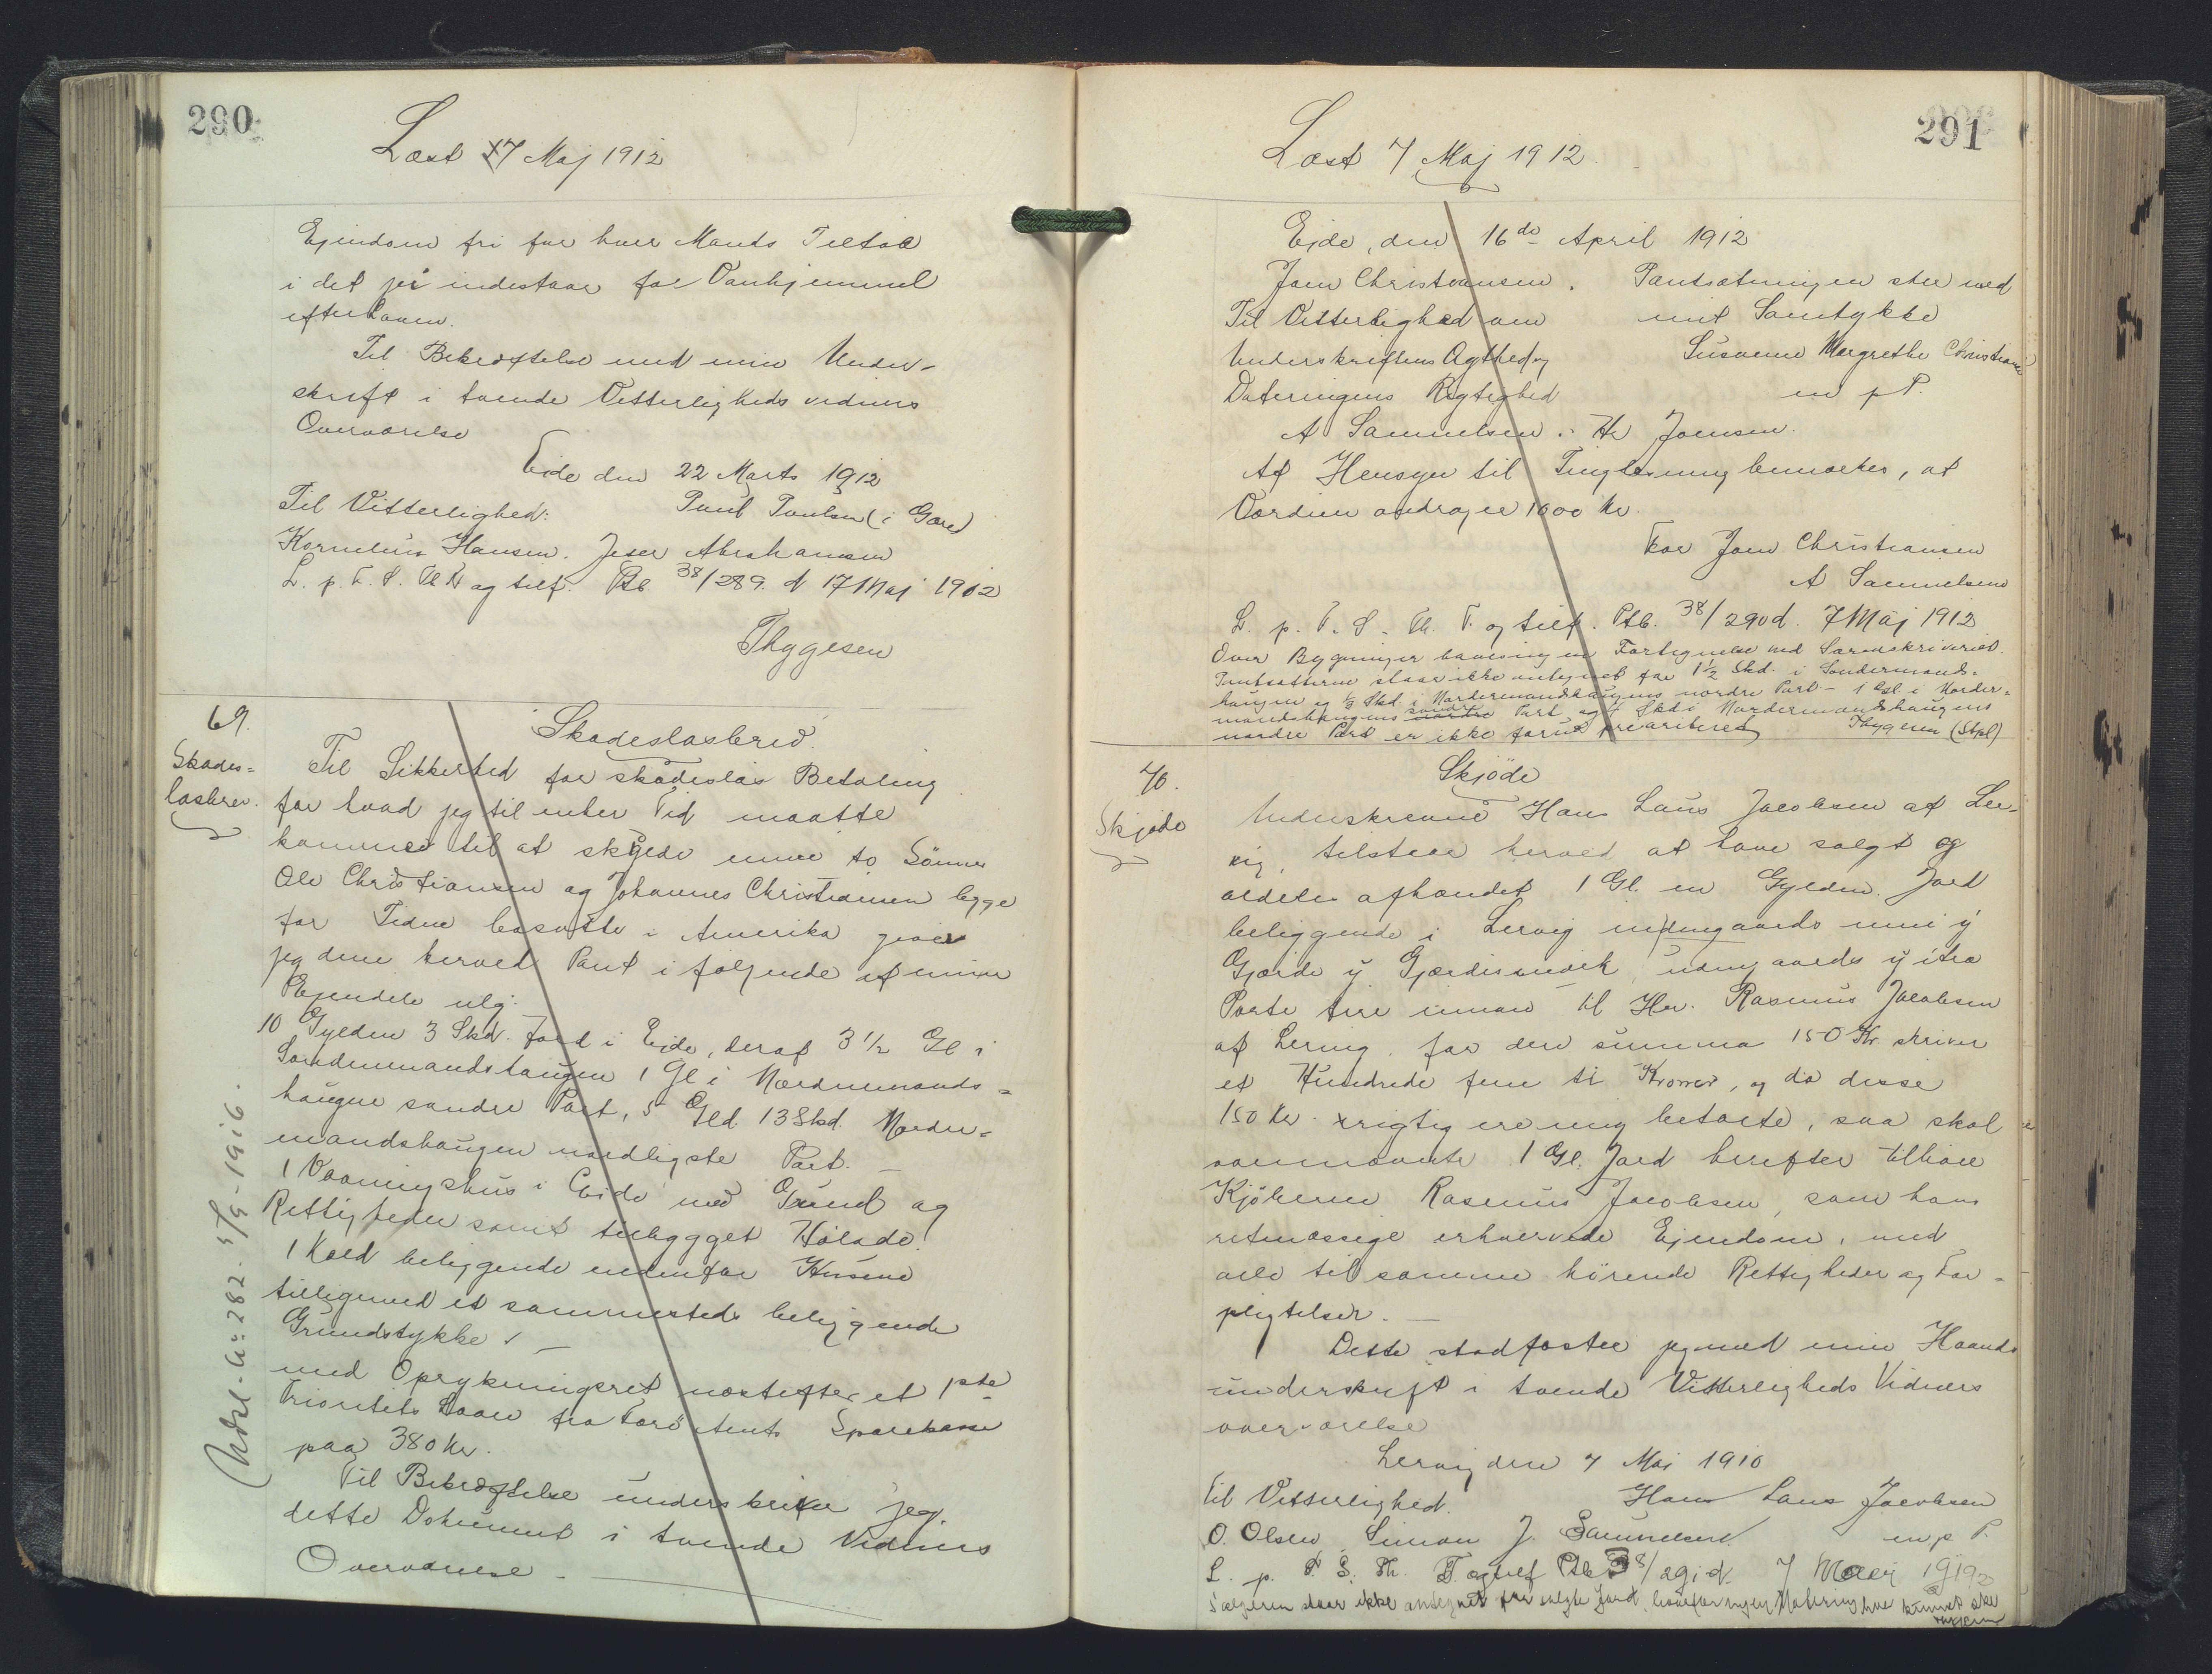 290
Læst 17 Maj 1912
Ejendom fri for hver Mands Tiltal
i det jeg indestaar for Vanhjemmel
efter Loven.
Til Bekræftelse med min Under-
skrift i tvende Vitterligheds vidners
Overværelse
Eide den 22 Marts 1912
Til Vitterlighed: Poul Poulsen (i Gare)
Kornelius Hansen. Jeser Abrahamsen
L. p. T. S. Th T og tilf. Ptb. 38/289. d 17 Maj 1912
Thygesen
69.
Skades=
løsbrev.
Skadesløsbrev.
Til Sikkerhed for skadesløs Betaling
for hvad jeg til enhver Tid maatte
komme til at skylde mine to Sönner
Ole Christiansen og Johannes Christiansen begge
for Tiden bosatte i Amerika giver
jeg dem herved Pant i følgende af mine
Ejendele nlg:
10 Gylden 3 Skd. Jord i Ejde, deraf 3 1/2 Gl i
Sondermandshaugen 1 Gl i Nordermands=
haugen søndre Part, 5 Gld. 13 Skd. Norder=
mandshaugen nordligste Part. —
1 Vaaningshus i Eide med Grund og
Rettigheder samt tilbygget Hølade.
1 Kald beliggende nedenfor Husene
tilligemed et sammesteds beliggende
Grundstykke /—
med Oprykningsret næstefter et 1ste
Prioritets Laan fra Færö Amts Sparekasse
paa 380 Kr.
Til Bekræftelse underskriver jeg
dette Dokument i tvende Vidners
Overværelse —
Udsl. A: 282. 5/9-1916.
291
Læst 7 Maj 1912
Ejde, den 16de April 1912
Joen Christiansen. Pantsætningen sker med
Til Vitterlighed om mit Samtykke
Underskriftens Ægthed og Susanne Margrethe Christians
Dateringens Rigtighed en p P.
A Samuelsen. H Joensen.
Af Hensyn til Tinglæsning bemærkes, at
Værdien andrager 1000 Kr.
For Joen Christiansen
A Samuelsen
L. p. T. S. Th. T. og tilf. Ptb. 38/290 d. 7 Maj 1912
Over Bygninger haves ingen Fortegnelse ved Sorenskriveriet.
Pantsætteren staar ikke antegnet for 1 1/2 Skd. i Sondermands-
haugen og 1/3 Skd. i Nordermandshaugens nordre Part — 1 Gl i Norder=
mandshaugens søndre Part og 4 Skd i Nordermandshaugens
nordre Part er ikke forud prioriteret Thygesen (Stpl)
70.
Skjøde
Skjöde
Underskrevne Hans Laus Jacobsen af Ler-
vig, tilstaar herved at have solgt og
aldeles afhændet 1 Gl. en Gylden Jord
beliggende i Lervig indengaards inni y
Gjærde y Gjærdismørk, udengaards y itra
Parte tire innan til Hr. Rasmus Jacobsen
af Lervig, for den summa 150 Kr. skriver
et Hundrede fem ti Kroner, og da disse
150 Kr. rigtig ere mig betalte, saa skal
ovennævnte 1 Gl. Jord herefter tilhøre
Kjöberen Rasmus Jacobsen, som hans
retmæssige erhvervede Ejendom, med
alle til samme hörende Rettigheder og For=
pligtelser. —
Dette stadfæster jeg med min Haands
underskrift i tvende Vitterligheds Vidners
overværelse
Lervig den 7 Mai 1910
Til Vitterlighed. Hans Laus Jacobsen
O. Olsen Simon J. Samuelsen m p P.
L. p. T. S. Th. T. og tilf Ptb 38/291 d. 7 Maj 1912
Sælgeren staar ikke antegnet for solgte Jord, hvorfor ingen Notering har kunnet ske
Thygesen